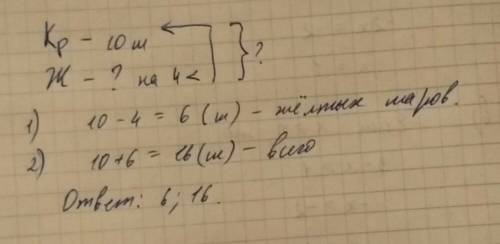 Кр – 10 ш
Ж – ? на 4 < } ?
1) 10 – 4 = 6 (ш) – жёлтых шаров.
2) 10 + 6 = 16 (ш) – всего
Ответ: 6; 16.